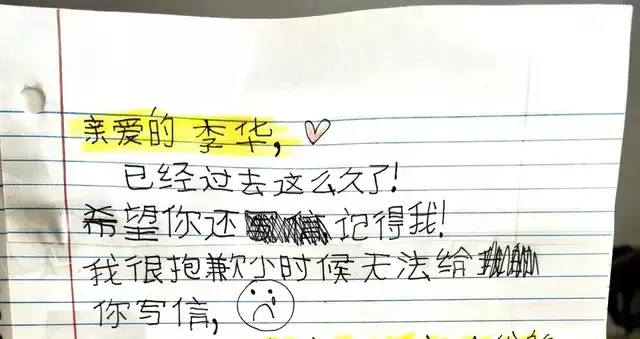 亲爱的 李华,
已经过去这么久了!
希望你还记得我!
我很抱歉小时候无法给
你写信,